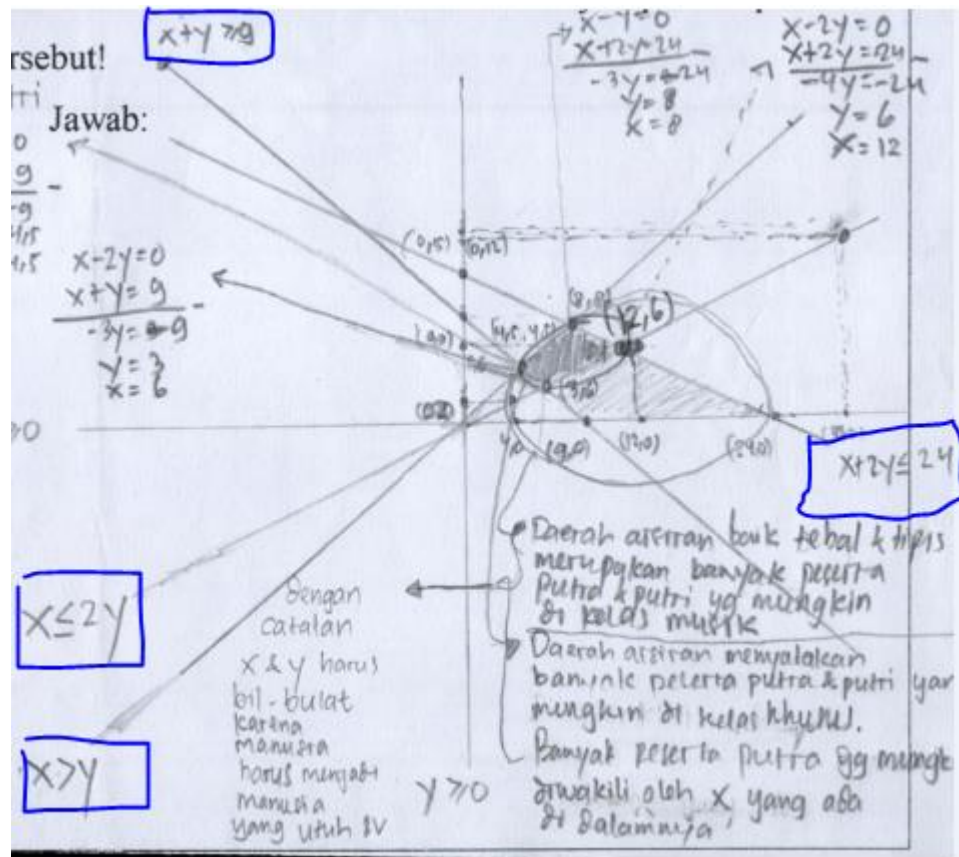 x+y≥9
rsebut!
Jawab:
0
9
-9
4,5
4,5
x-y=0
x+2y=24 -
-3y=-24
y=8
x=8
x-2y=0
x+2y=24 -
-4y=-24
y=6
x=12
x-2y=0
x+y=9 -
-3y=-9
y=3
x=6
(0,12)
(8,8)
(12,6)
(9,0)
(12,0)
(24,0)
x+2y≤24
x≤2y
x>y
y≥0
Dengan
catatan
x & y harus
bil. bulat
karena
manusia
harus menjadi
manusia
yang utuh
Daerah arsiran baik tebal & tipis
merupakan banyak peserta
putra & putri yg mungkin
di kelas musik
Daerah arsiran menyatakan
banyak peserta putra & putri yan
mungkin di kelas khusus.
Banyak peserta putra yg mungk
diwakili oleh x, yang ada
di dalamnya